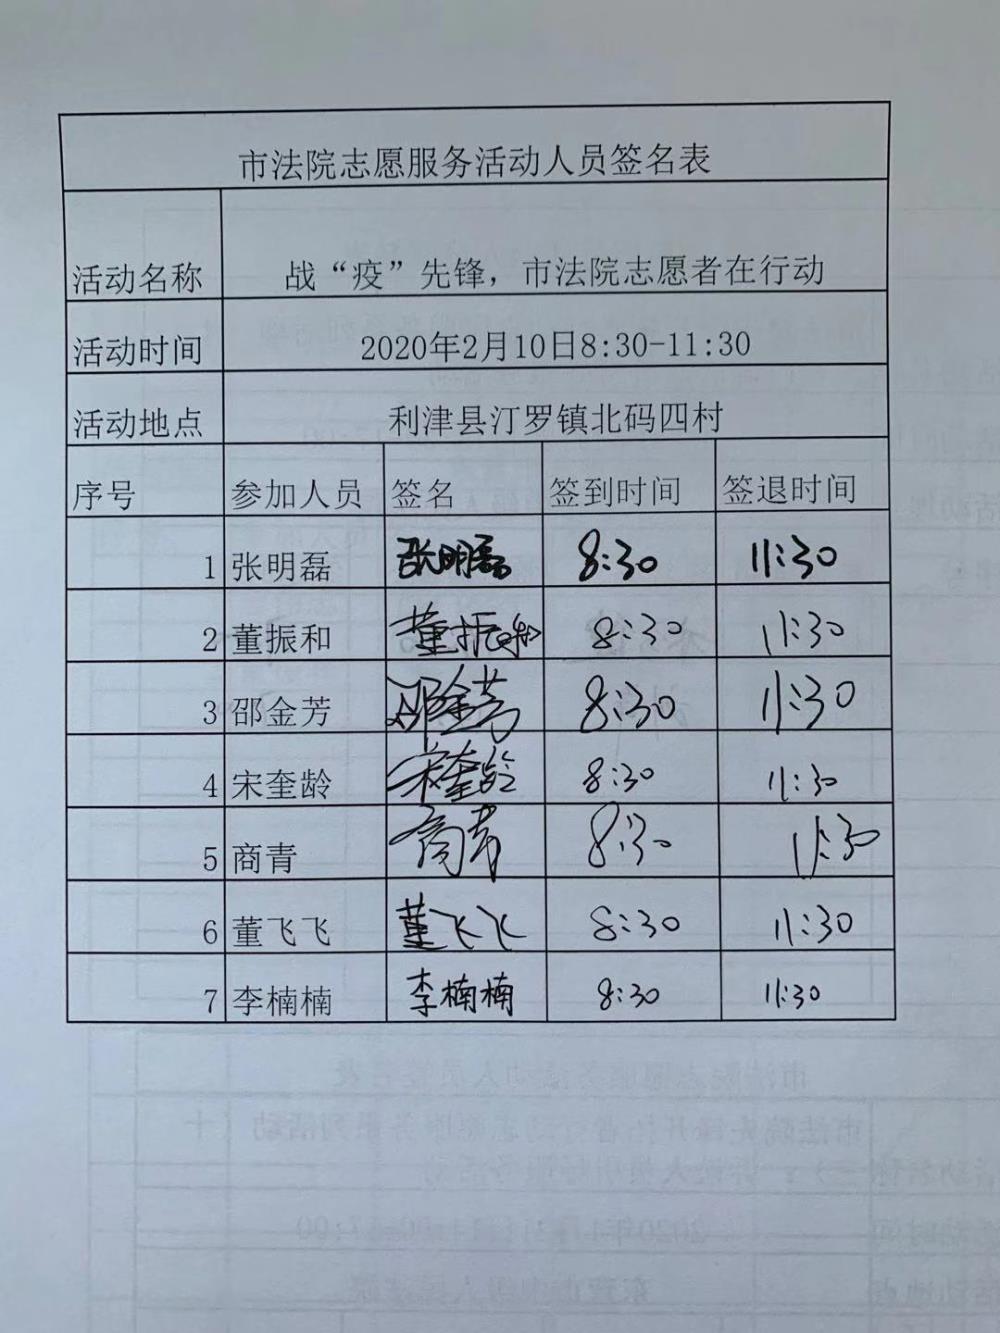 市法院志愿服务活动人员签名表
活动名称 战“疫”先锋，市法院志愿者在行动
活动时间 2020年2月10日8:30-11:30
活动地点 利津县汀罗镇北码四村
序号 参加人员 签名 签到时间 签退时间
1 张明磊 张明磊 8:30 11:30
2 董振和 董振和 8:30 11:30
3 邵金芳 邵金芳 8:30 11:30
4 宋奎龄 宋奎龄 8:30 11:30
5 商青 商青 8:30 11:30
6 董飞飞 董飞飞 8:30 11:30
7 李楠楠 李楠楠 8:30 11:30
市法院志愿服务活动人员签名表